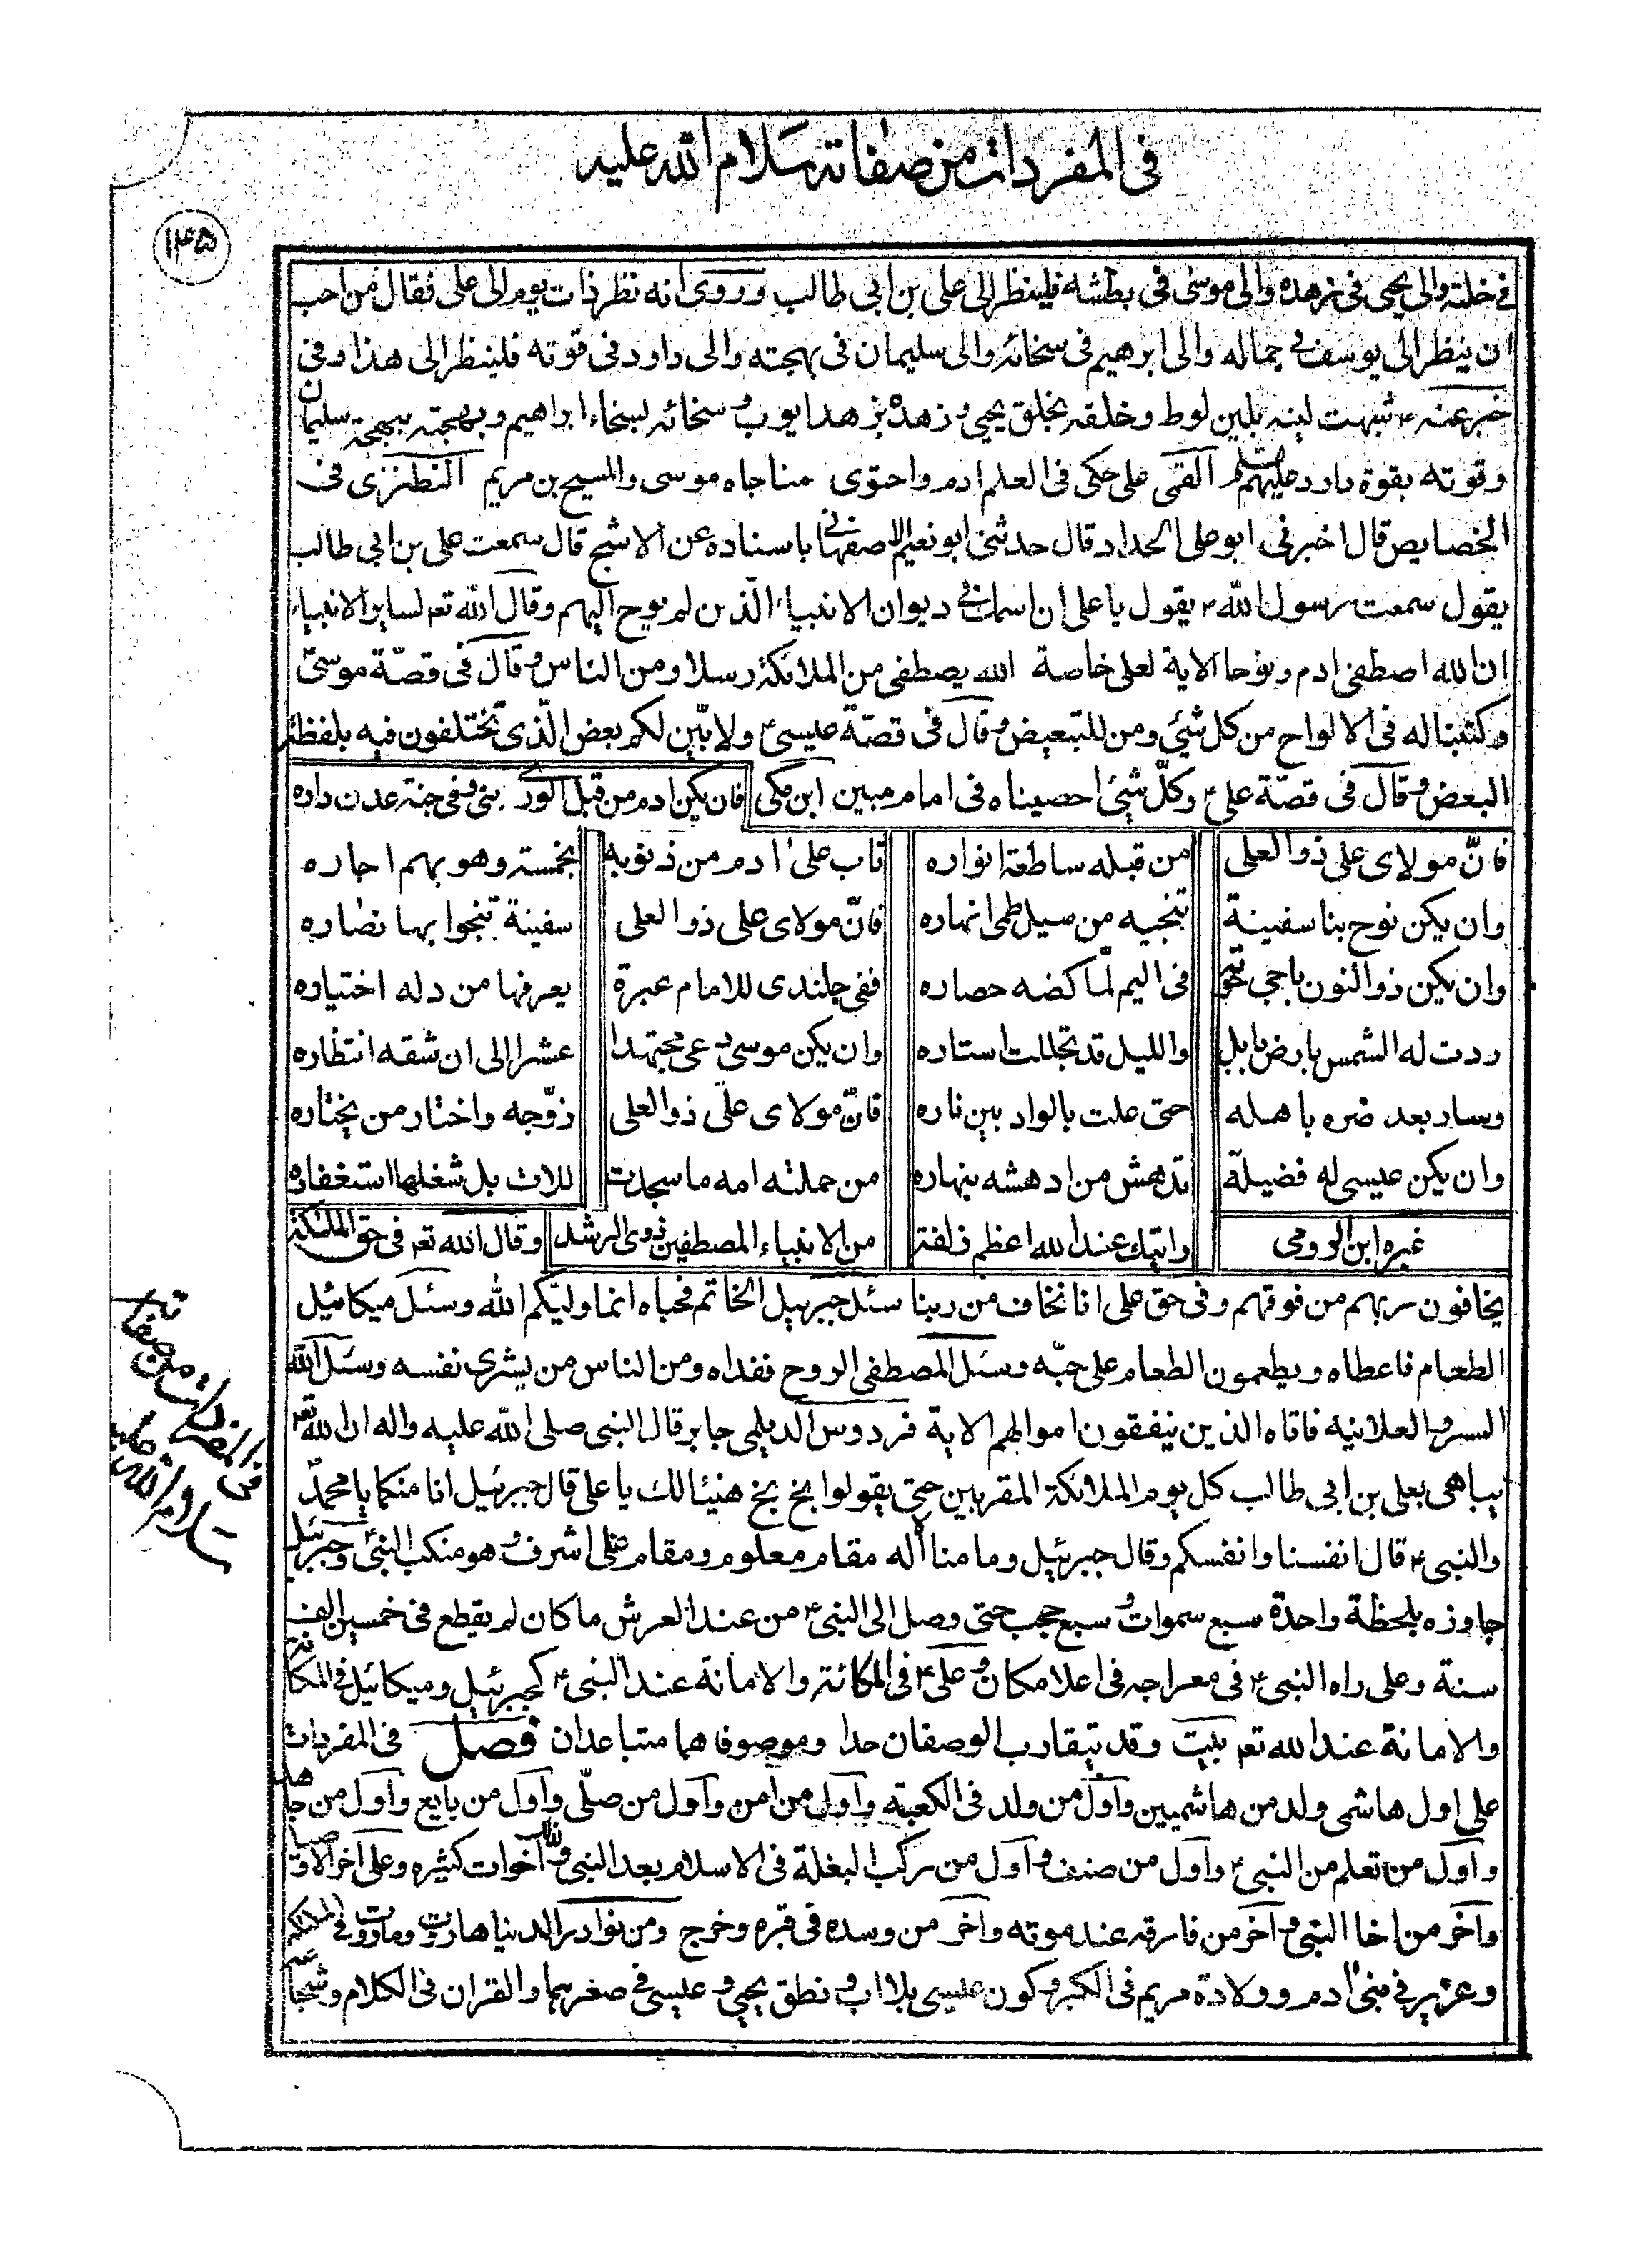 فى المفردات من صفاته سلام الله عليه
١٤٥
فى خلته والى يحيى فى زهده والى موسى فى بطشه فلينظر الى على بن ابى طالب وروى انه نظر ذات يوم الى على فقال من احب
ان ينظر الى يوسف فى جماله والى ابرهيم فى سخائه والى سليمان فى بهجته والى داود فى قوته فلينظر الى هذا وفى
خبر عنه ٤ شبهت لينه بلين لوط وخلقه بخلق يحيى وزهده بزهد ايوب وسخائه بسخاء ابراهيم وبهجته ببهجة سليمان
وقوته بقوة داود عليهم السلم القمى على حكى فى العلم ادم واحتوى مناجاه موسى والمسيح بن مريم النطنزى فى
الخصايص قال اخبرنى ابو على الحداد قال حدثنى ابو نعيم الاصفهانى باسناده عن الاشج قال سمعت على بن ابى طالب
يقول سمعت رسول الله ٤ يقول يا على ان اسمك فى ديوان الانبياء الّذين لم يوح اليهم وقال الله تعه لساير الانبياء
ان الله اصطفى ادم ونوحا الاية لعلى خاصة الله يصطفى من الملائكة رسلا ومن الناس وقال فى قصّة موسى
وكتبنا له فى الالواح من كل شيئ ومن للتبعيض وقال فى قصّة عيسى ٤ ولابيّن لكم بعض الّذى تختلفون فيه بلفظة
البعض وقال فى قصّة على ٤ وكلّ شيئ احصيناه فى امام مبين ابن مكى فان يكن ادم من قبل الورى بنى وفى جنة عدن داره
فانّ مولاى على ذو العلى من قبله ساطعة انواره تاب على ادم من ذنوبه بخمسة وهو بهم اجاره
وان يكن نوح بنا سفينة تنجيه من سيل طمى انهاره فانّ مولاى على ذو العلى سفينة تنجوا بها نضاره
وان يكن ذو النون ناجى حوته فى اليم لمّا كضه حصاره ففى جلندى للامام عبرة يعرفها من دله اختياره
ردت له الشمس بارض بابل والليل قد تجللت استاره وان يكن موسى دعى مجتهدا عشرا الى ان شقه انتظاره
وسار بعد ضره باهله حتى علت بالواد بين ناره فانّ مولاى علىّ ذو العلى زوّجه واختار من يختاره
وان يكن عيسى له فضيلة تدهش من ادهشه ينهاره من حملته امه ما سجدت للات بل شغلها استغفاره
غيره ابن الرومى رايتك عند الله اعظم زلفة من الانبياء المصطفين ذوى الرشد وقال الله تعه فى حق الملئكة
يخافون ربهم من فوقهم وفى حق على انا نخاف من ربنا سئل جبرييل الخاتم فحباه انما وليّكم الله وسئل ميكائيل
الطعام فاعطاه ويطعمون الطعام على حبّه وسئل المصطفى الروح ففداه ومن الناس من يشرى نفسه وسئل الله
السر والعلانية فاتاه الذين ينفقون اموالهم الاية فردوس الديلمى جابر قال النبى صلى الله عليه واله ان الله تعه
يباهى بعلى بن ابى طالب كل يوم الملائكة المقربين حتى يقولوا بخ بخ هنيئا لك يا على قال جبرئيل انا منكما يا محمدّ
والنبى ٤ قال انفسنا وانفسكم وقال جبرئيل وما منا الا له مقام معلوم ومقام على اشرف وهو منكب النبى وجبرئيل
جاوزه بلحظة واحدة سبع سموات وسبع حجب حتى وصل الى النبى ٤ من عند العرش ما كان لم يقطع فى خمسين الف
سنة وعلى راه النبى ٤ فى معراجه فى اعلا مكان وعلى ٤ فى المكانة والامانة عند النبى ٤ كجبرئيل وميكائيل فى المكانة
والامانة عند الله تعه بليت وقد يتقارب الوصفان جدا وموصوفاهما متباعدان فصل فى المفردات
على اول هاشمى ولد من هاشميين واول من ولد فى الكعبة واول من امن واول من صلّى واول من بايع واول من جاهد
واول من تعلم من النبى ٤ واول من صنف واول من ركب البغلة فى الاسلام بعد النبى ولذلك اخوات كثيره وعلى اخر الاوصياء
واخر من اخا النبى واخر من فارقه عند موته واخر من وسده فى قبره وخرج ومن نوادر الدنيا هاروت وماروت فى الملئكة
وعزير فى بنى ادم وولادة مريم فى الكبر وكون عيسى بلا اب ونطق يحيى وعيسى فى صغرهما والقران فى الكلام وشجاعة
فى المفردات من صفاته
سلام الله عليه